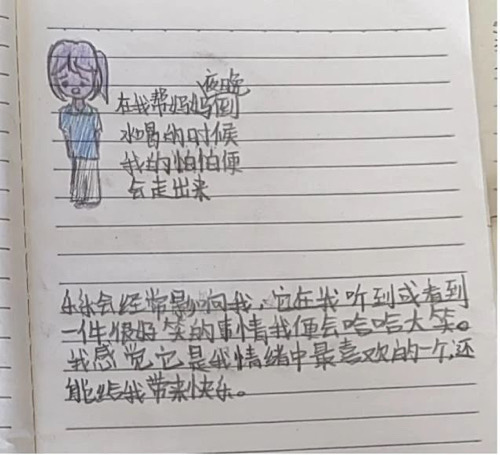 夜晚
在我帮妈妈倒
水喝的时候
我的怕怕便
会走出来
乐乐会经常影响我，它在我听到或看到
一件很好笑的事情我便会哈哈大笑。
我感觉它是我情绪中最喜欢的一个，还
能给我带来快乐。